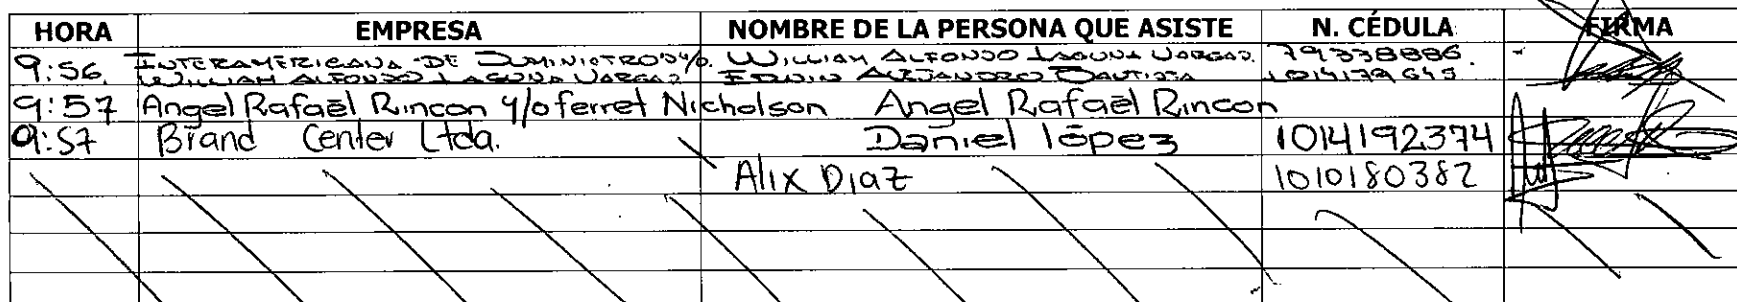 HORA EMPRESA NOMBRE DE LA PERSONA QUE ASISTE N. CÉDULA FIRMA
9:56 INTERAMERICANA DE SUMINISTROS Y/O. WILLIAM ALFONSO LAGUNA VARGAS. 79338886.
WILLIAM ALFONSO LAGUNA VARGAS EDWIN ALEJANDRO BAUTISTA 1014179645
9:57 Angel Rafael Rincon y/o ferret Nicholson Angel Rafael Rincon
9:57 Brand Center Ltda. Daniel lópez 1014192374
Alix Diaz 1010180382